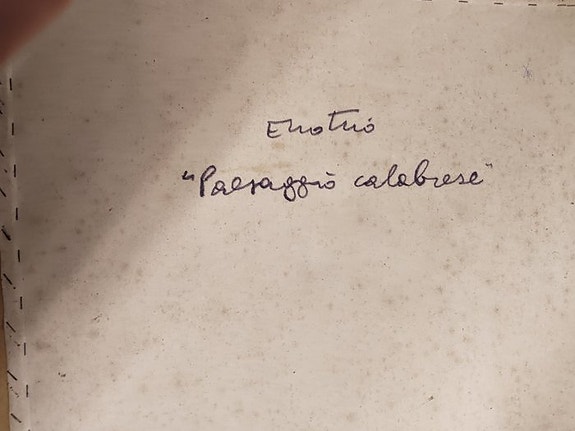 Enotrio
"Paesaggio calabrese"